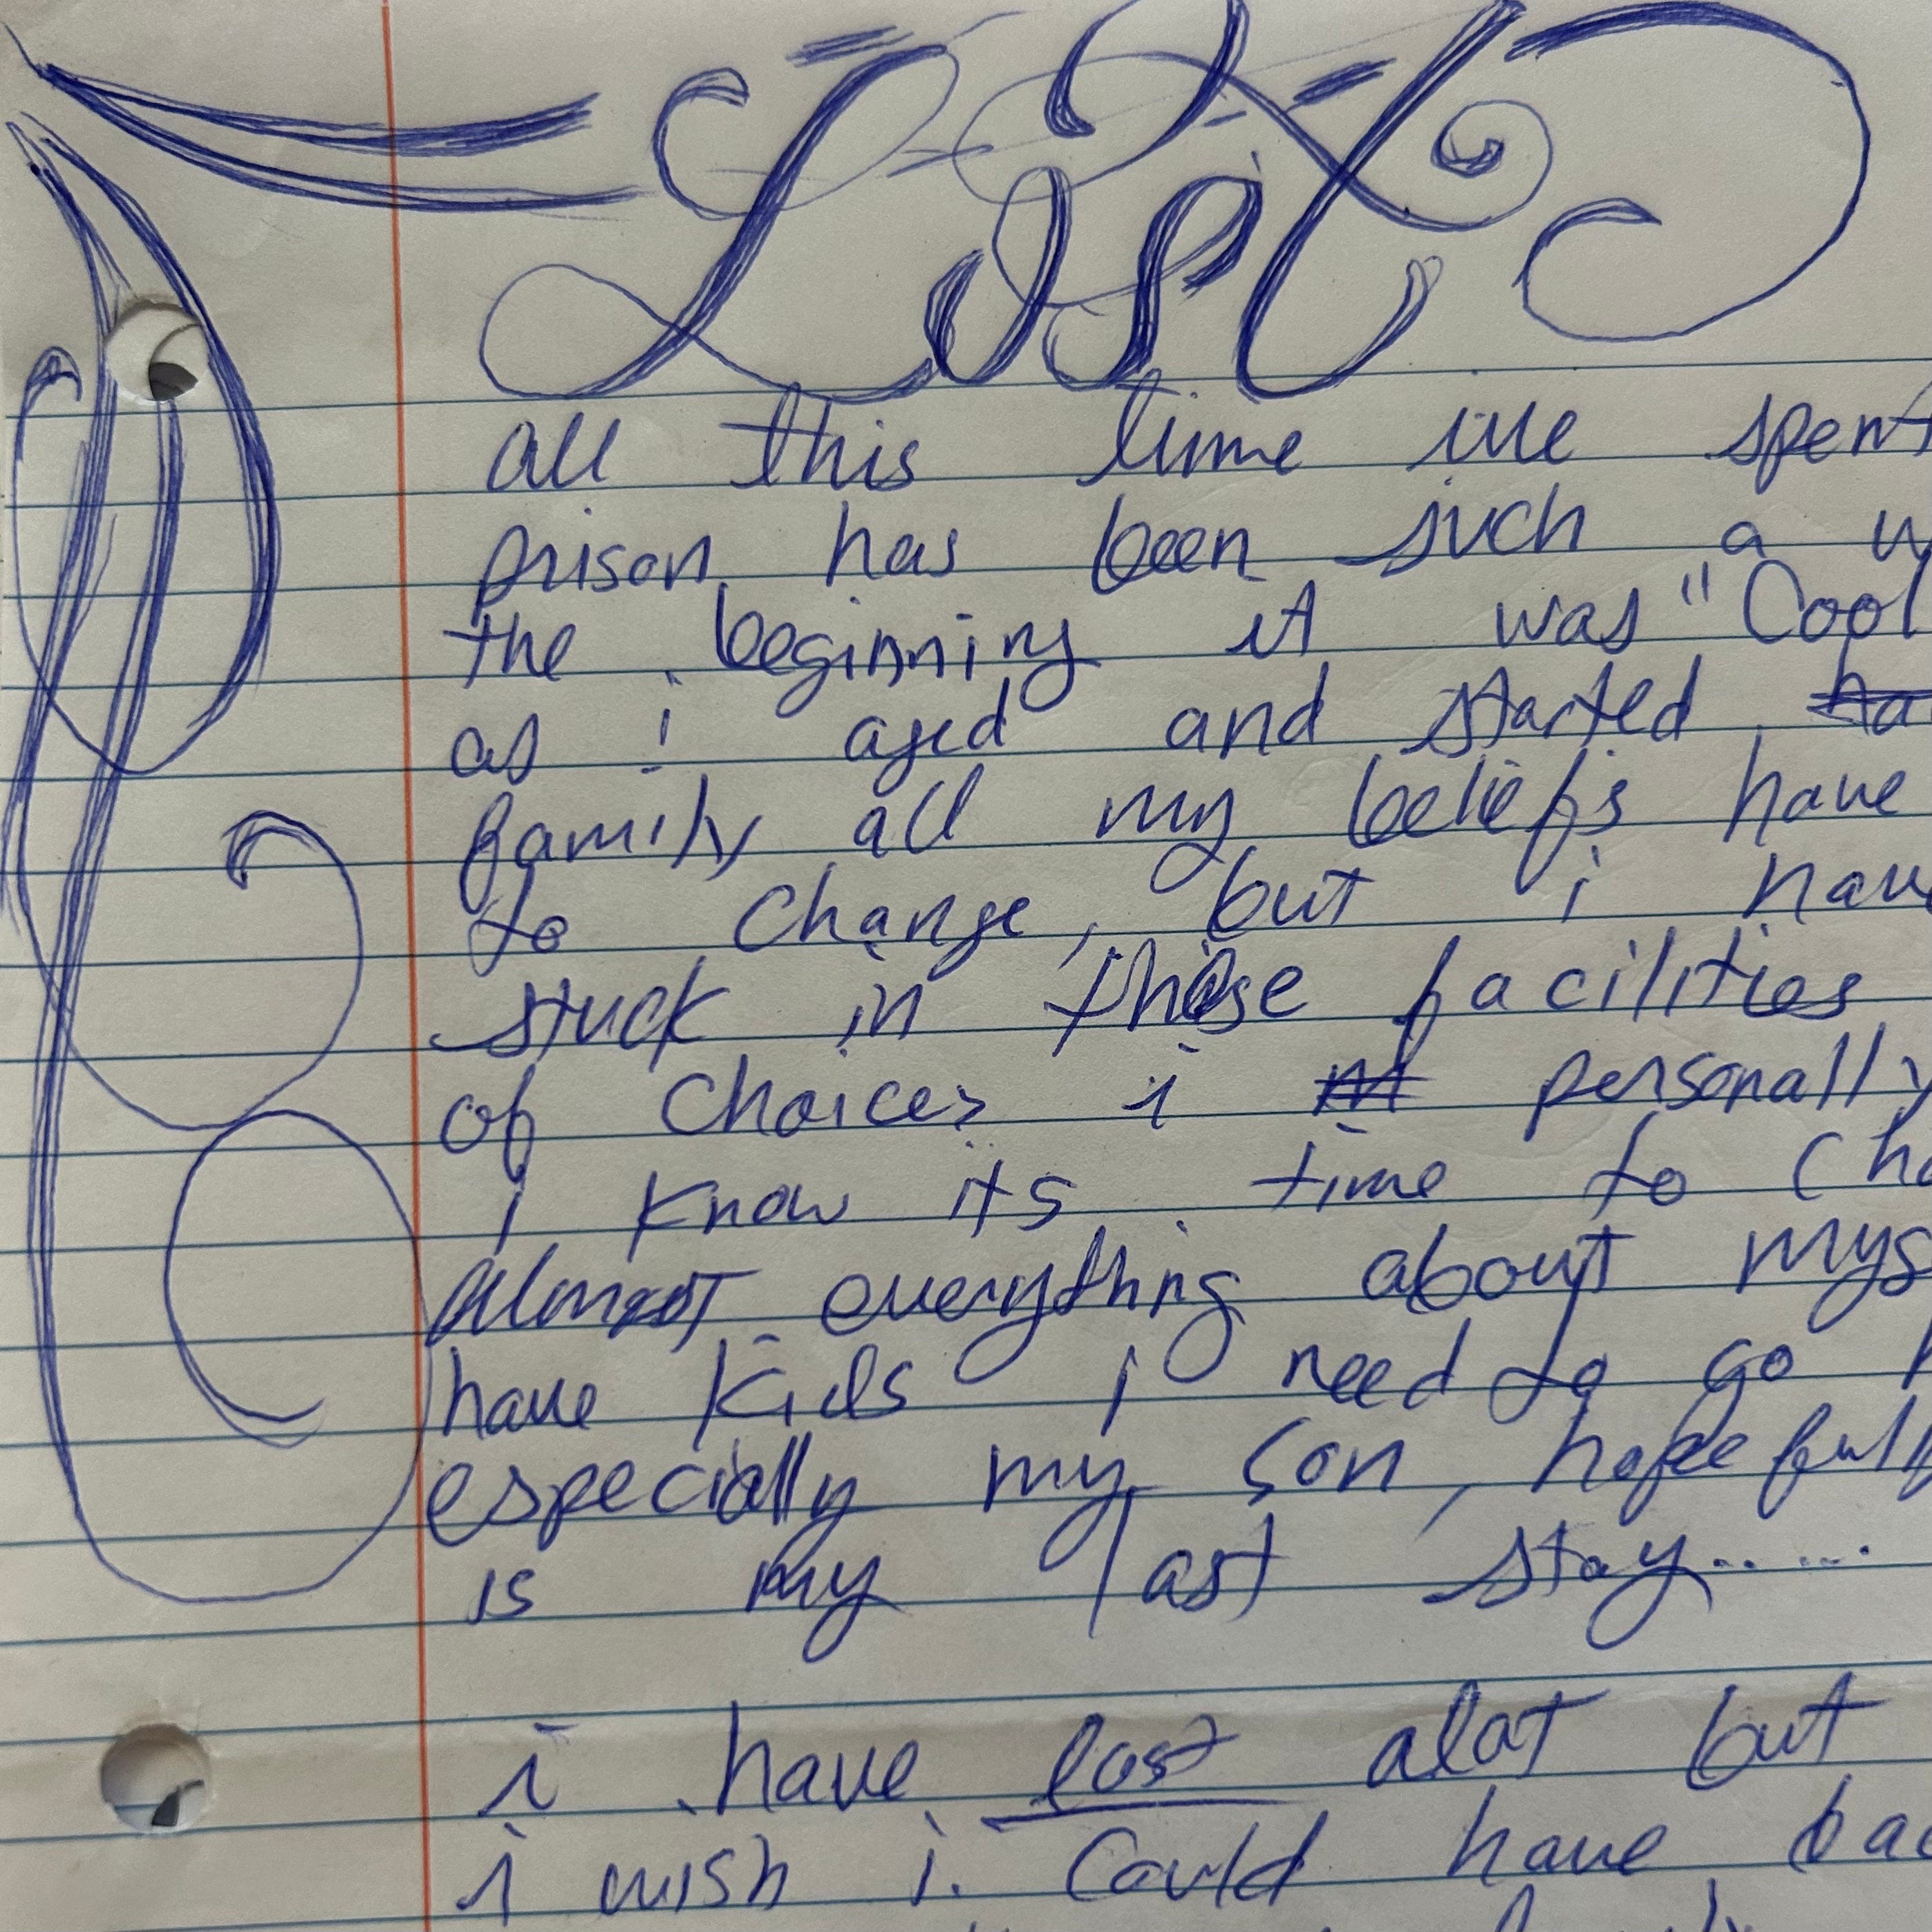 Lost
all this time ive spent
prison has been such a w
the beginning it was "Cool
as i aged and started
family all my beliefs have
to change, but i have
stuck in those facilities
of choices i personally
i know its time to cha
almost everything about mys
have kids i need to go h
especially my son, hopefully
is my last stay......
i have lost alot but
i wish i could have bac